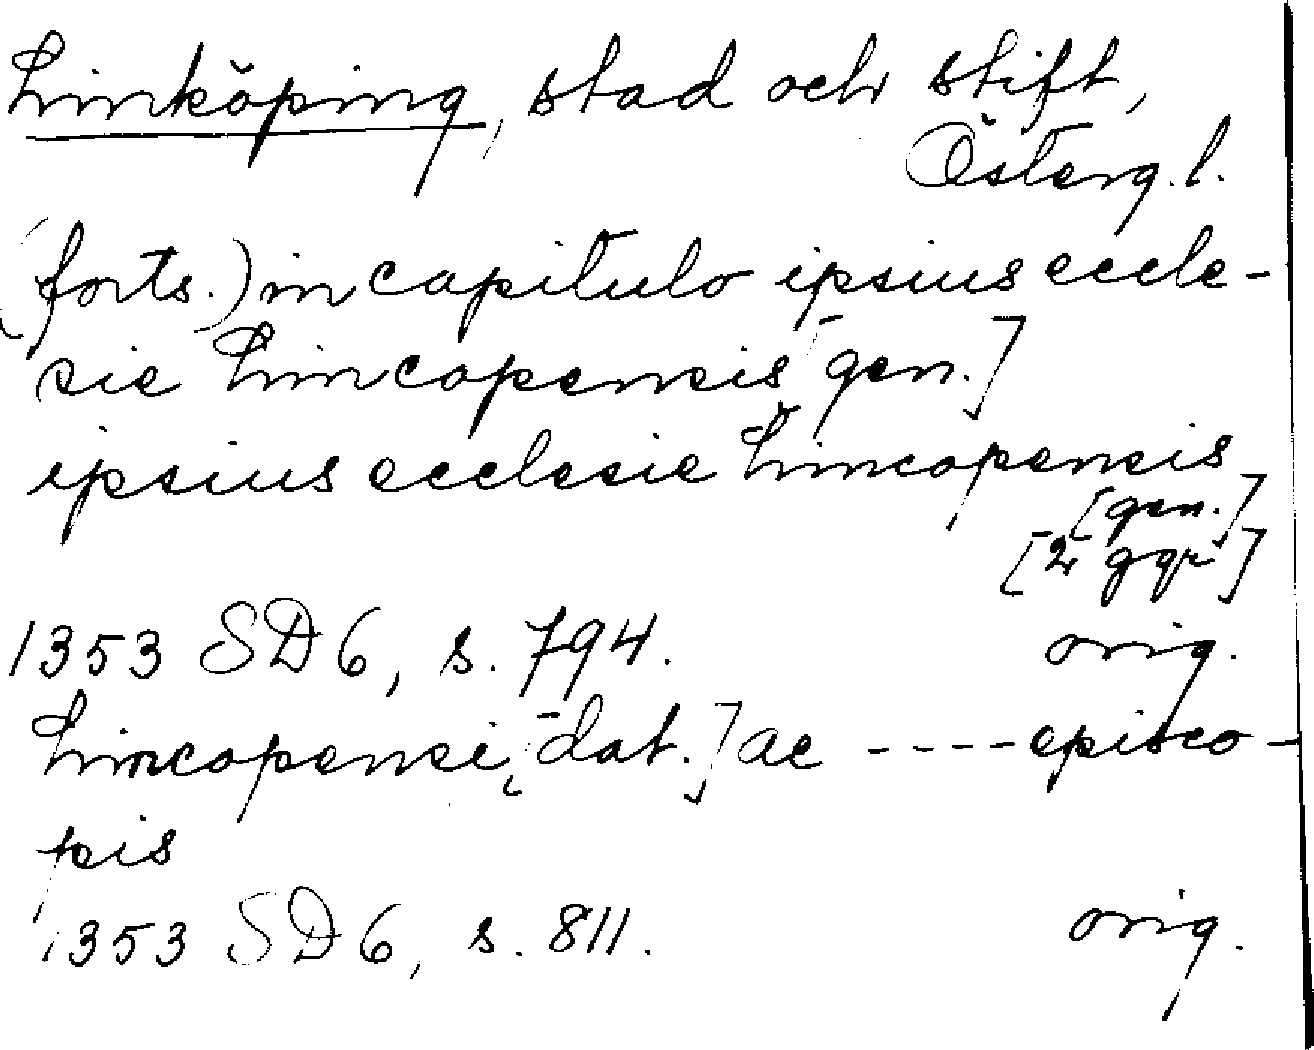 Linköping, stad och stift,
Österg.l.
(forts.) in capitulo ipsius eccle-
sie Lincopensis [gen.]
ipsius ecclesie Lincopensis
[gen.]
[2 ggr]
1353 SD 6, s. 794. orig.
Lincopensi [dat.] ac ---- episco-
pis
1353 SD 6, s. 811. orig.